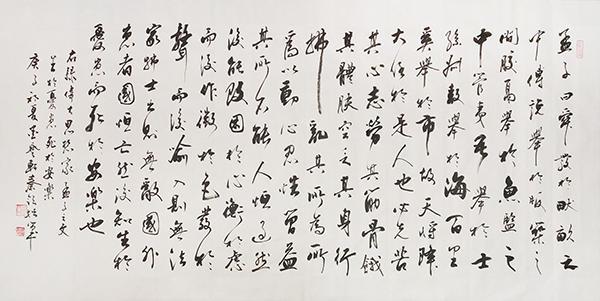 孟子曰舜發於畎畝之
中傅說舉於版築之
間膠鬲舉於魚鹽之
中管夷吾舉於士
孫叔敖舉於海百里
奚舉於市故天將降
大任於是人也必先苦
其心志勞其筋骨餓
其體膚空乏其身行
拂亂其所為所
以動心忍性曾益
其所不能人恒過然
後能改困於心衡於慮
而後作徵於色發於
聲而後喻入則無法
家拂士出則無敵國外
患者國恒亡然後知生於
憂患而死於安樂也
右錄偉大思想家孟子之文
生於憂患死於安樂
庚子初夏